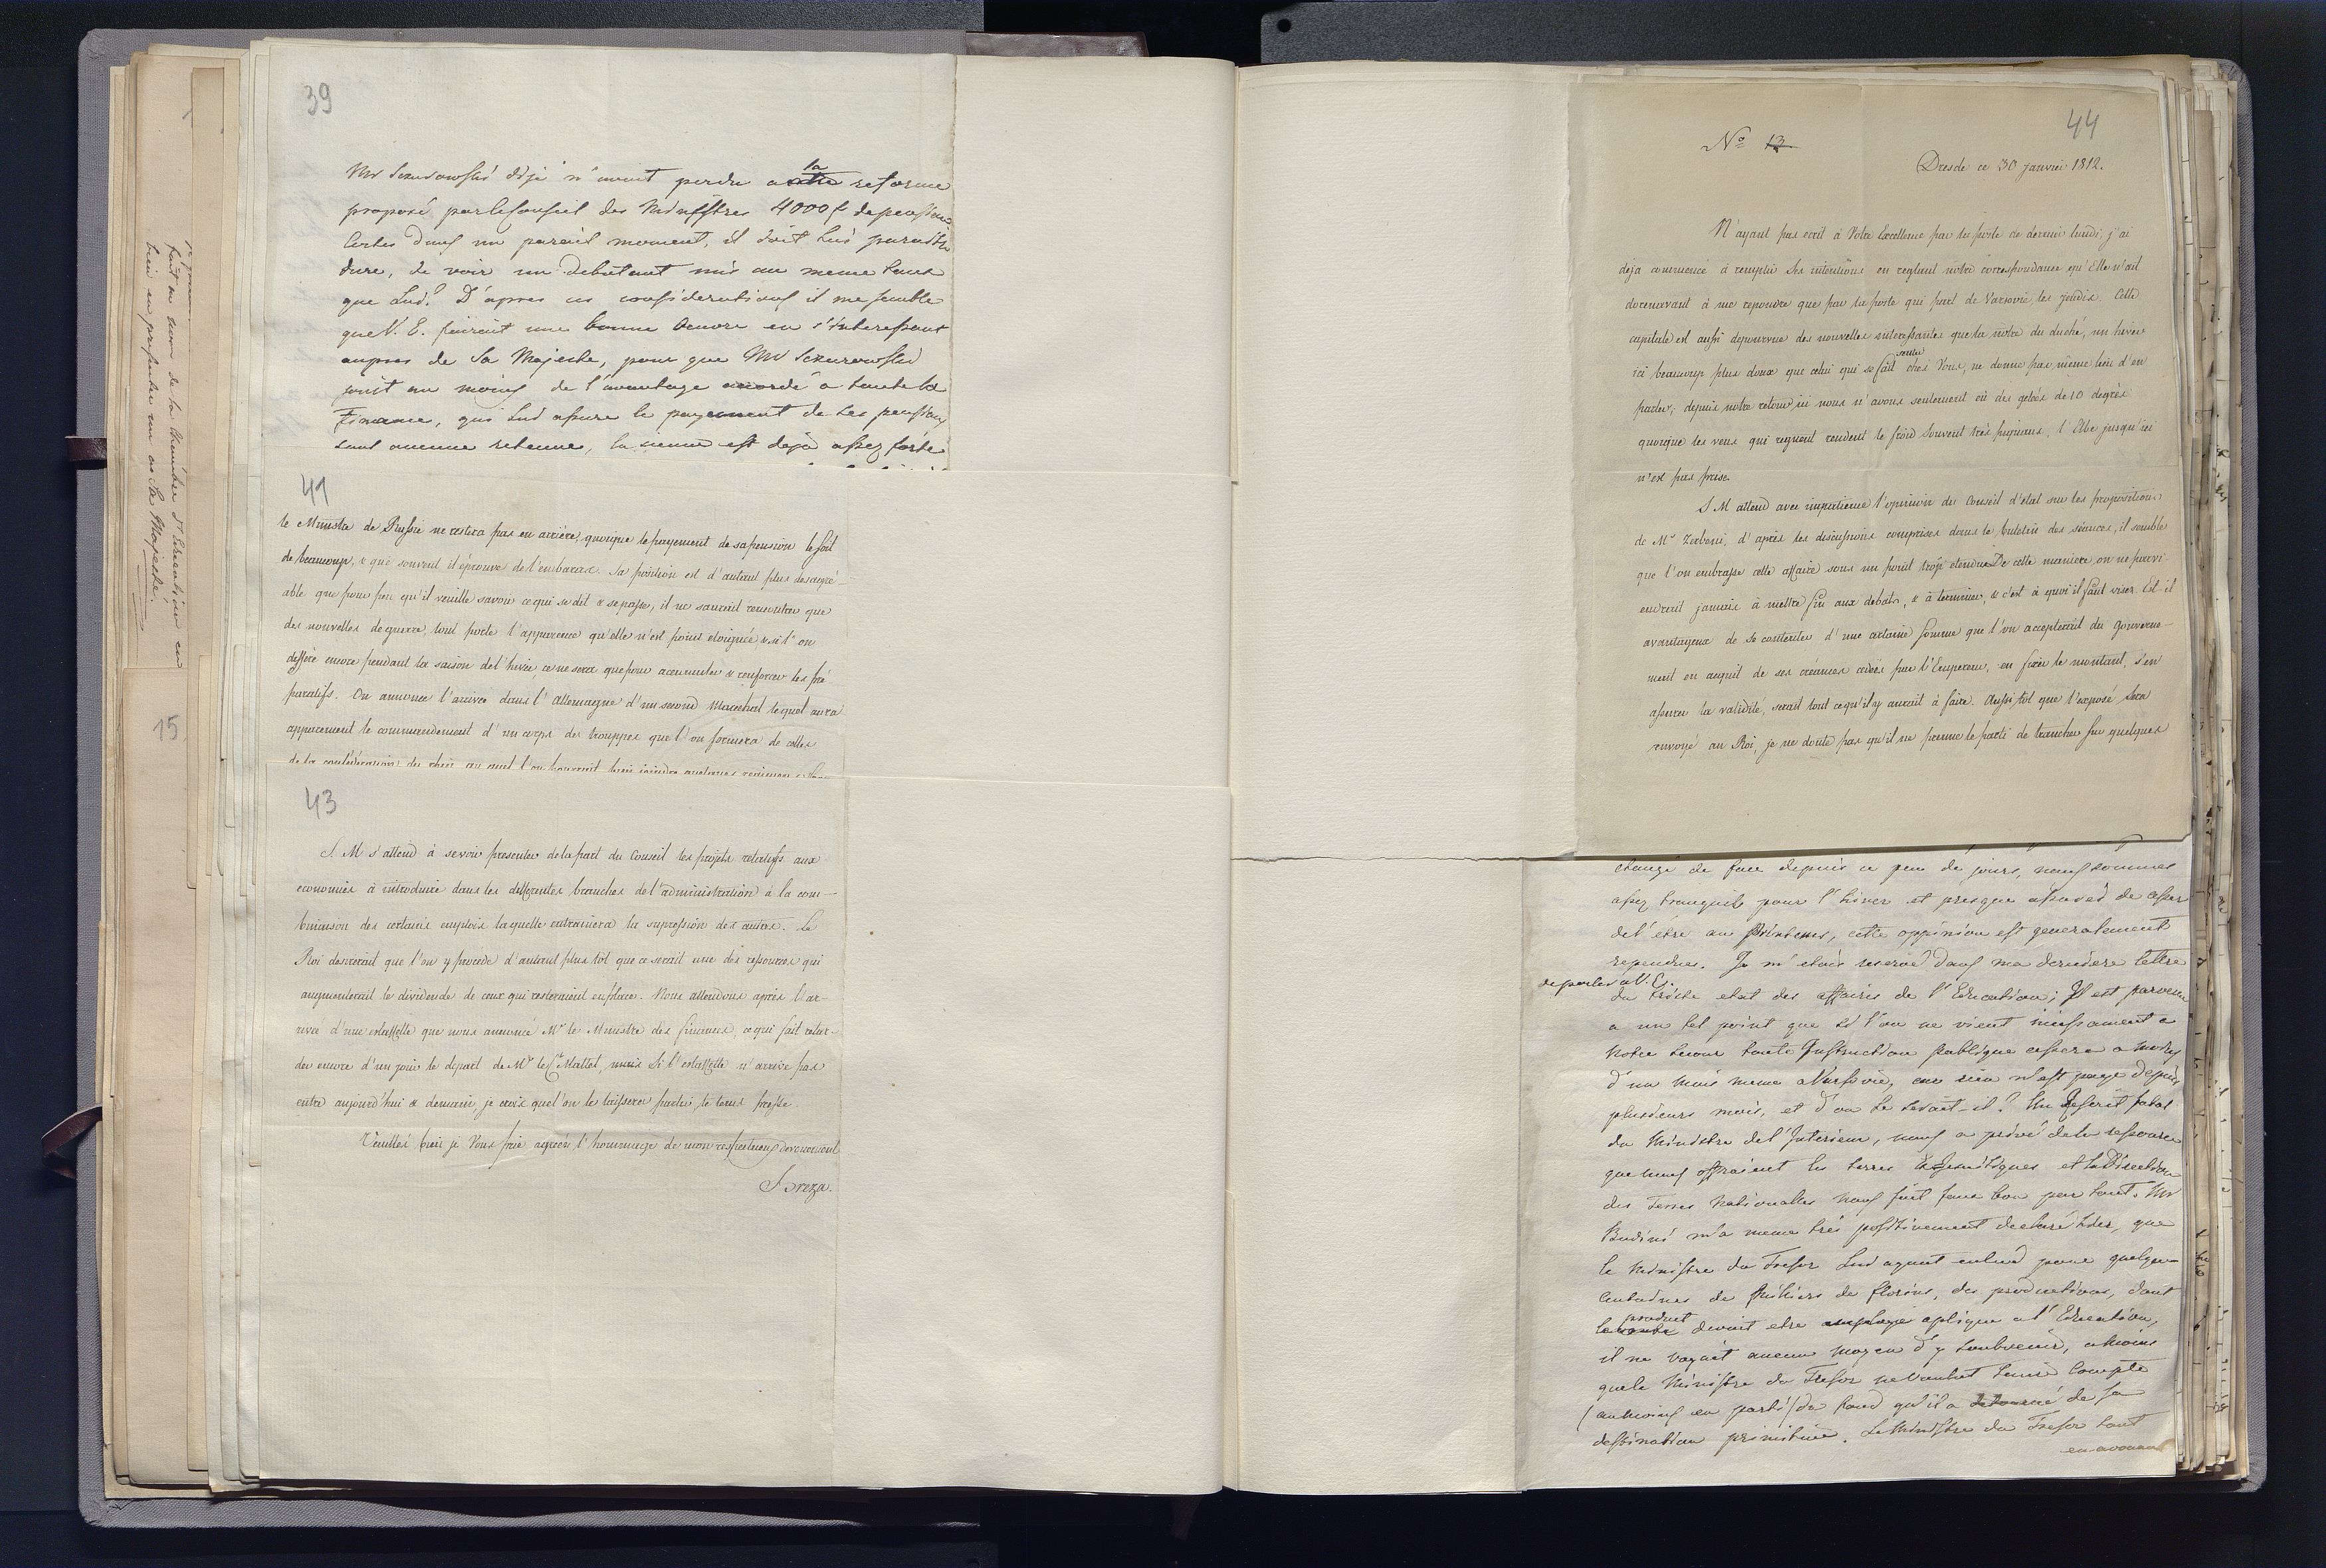 39
Mr Sczurowski déja n'avent perdu a la reforme
proposé par le Conseil des Ministres 4000 f de pension
Certes dans un pareil moment, il doit lui paraitre
dure, de voir un Debutant mis au meme taux
que Lui? D'apres ces considerations il me semble
que V. E. feirait une bonne Oeuvre en s'interessant
aupres de Sa Majeste, pour que Mr Sczurowski
jouit au moins de l'avantage accordé a toute la
Finance, qui lui assure le payement de ses pensions
sans aucune retenue, la sienne est deja assez forte
41
le Ministre de Russie ne restera pas en arriere, quoique le payement de sa pension le soit
de beaucoup, & que souvent il éprouve de l'embaras. Sa position est d'autant plus desagré-
able que pour peu qu'il veuille savoir ce qui se dit & se passe, il ne saurait rencontrer que
des nouvelles de guerre, tout porte l'apparence qu'elle n'est point eloignée & si l'on
differe encore pendant la saison de l'hiver, ce ne sera que pour accumuler & renforcer les pré
paratifs. On annonce l'arrivée dans l'Allemagne d'un second Marechal lequel aura
apparement le commandement d'un corps des trouppes que l'on formera de celles
de la confédération du rhin au quel l'on pourrait bien joindre quelques
43
S. M s'attend à se voir presenter de la part du Conseil les projets relatifs aux
economies à introduire dans les differentes branches de l'administration à la com-
binaison des certains emplois laquelle entrainera la supression des autres. Le
Roi desirerait que l'on y procede d'autant plus tôt que ce serait une des ressources qui
augmenterait le dividende de ceux qui resteraient en place. Nous attendons après l'ar-
rivée d'une estaffette que nous annonce Mr le Ministre des finances, ce qui fait retar-
der encore d'un jour le depart de Mr le Cte Mallet, mais si l'estaffette n'arrive pas
entre aujourd'hui & demain, je crois que l'on le laissera partir, le tems presse.
Veuillés bien je Vous prie agréer l'hommage de mon respectueux devouement
Breza.
faut au sein de la Chambre d'Education en
bien en presenter un a Sa Majesté.
15
44
No 13
Dresde ce 30 janvier 1812.
N'ayant pas ecrit à Votre Excellence par la poste de dernier lundi, j'ai
deja commencé à remplir Ses intentions en reglant notre correspondance qu'Elle n'ait
dorenavant à me repondre que par la poste qui part de Varsovie, les jeudis. Cette
capitale est aussi depourvue des nouvelles interessantes que la notre du duché, un hiver
sentir
ici beaucoup plus doux que celui qui se fait chés Vous, ne donne pas même lieu d'en
parler; depuis notre retour ici nous n'avons seulement eü des gelées de 10 degrés
quoique les vens qui regnent rendent le froid souvent très piquant, l'Elbe jusqu'ici
n'est pas prise.
S M attend avec impatience l'opinion du Conseil d'état sur les propositions
de Mr Zerboni, d'après les discussions comprises dans le buletin des séances, il semble
que l'on embrasse cette affaire sous un point trop etendu. De cette maniere on ne parvi-
endrait jamais à mettre fin aux debats, & à terminer, & c'est à quoi il faut viser. Est-il
avantageux de se contenter d'une certaine somme que l'on accepterait du gouverne-
ment en acquit de ses créances cedées par l'Empereur, en fixer le montant, s'en
assurer la validité, serait tout ce qu'il y aurait à faire. Aussi tôt que l'exposé sera
envoyé au Roi, je ne doute pas qu'il ne prenne le parti de trancher sur quelques
changé de face depuis ce peu de jours, nous sommes
assez tranquils pour l'hiver et presque assurés de cesser
de l'être au Printems, cette oppinion est generalement
rependue. Je m'etais reservé dans ma derniere lettre
de parler a V. E.
du triste etat des affaires de l'Education; Il est parvenu
a un tel point que si l'on ne vient incessament a
notre secour toute Instruction publique cessera a moins
d'un mois meme a Varsovie, car rien n'est payé depuis
plusieurs mois, et d'ou le serait-il? Un Rescrit fatal
du Ministre de l'Interieur, nous a privé de la ressource
que nous offraient les terres et la Direction
des Terres Nationalles nous fait faux bon par tout. Mr
Badeni m'a meme très positivement declaré hier, que
le Ministre du Tresor lui ayant enlevé pour quelques
Centaines de Milliers de florins, des productions, dont
produit
la vente devait etre employé apliqué a l'Education,
il ne voyait aucun moyen d'y subvenir, a moins
que le Ministre du Tresor ne Voulut tenir Compte
(au moins en parti) du fond qu'il a detourné de sa
destination primitive. Le Ministre du Tresor tout
en avouant